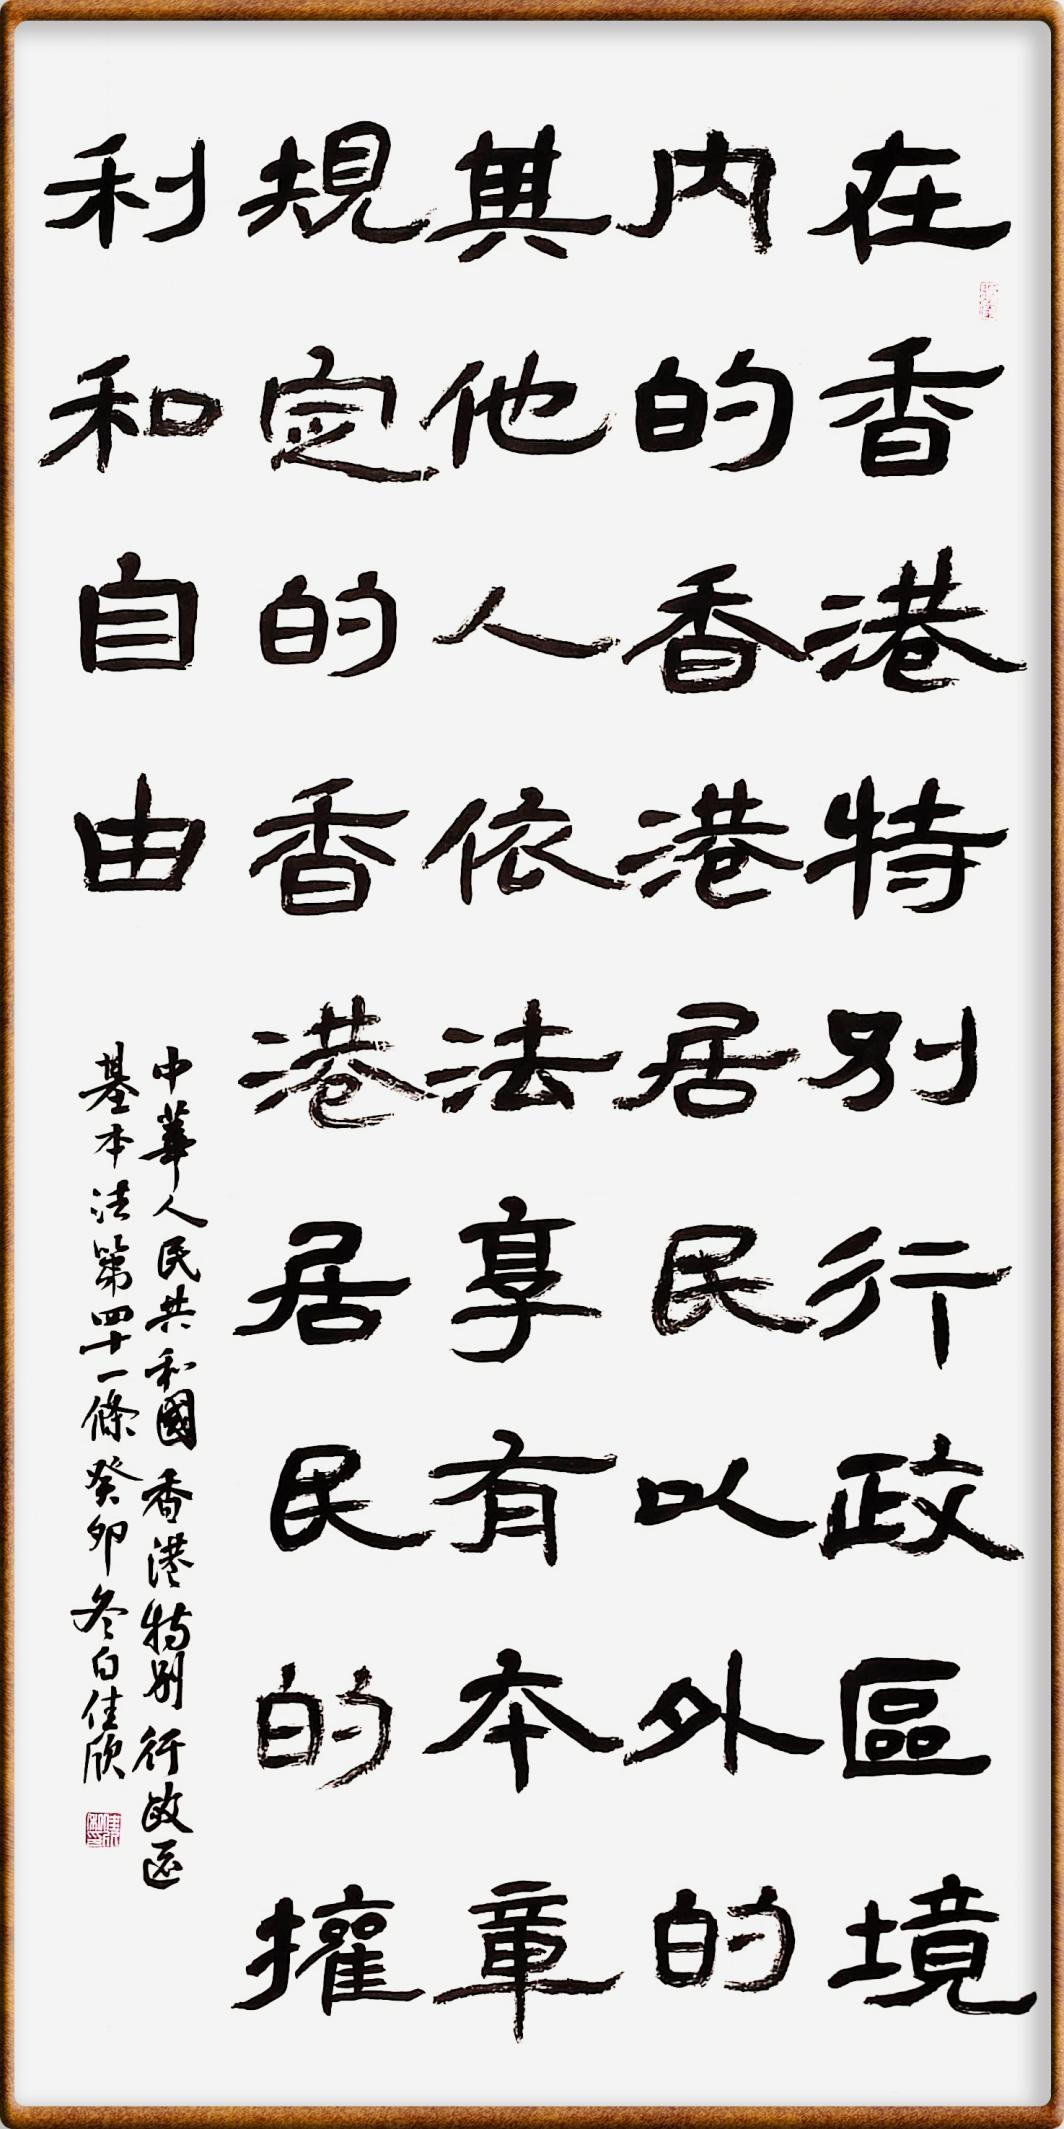 在香港特別行政區境
内的香港居民以外的
其他人依法享有本章
規定的香港居民的權
利和自由
中華人民共和國香港特別行政區
基本法第四十一條癸卯冬白佳欣